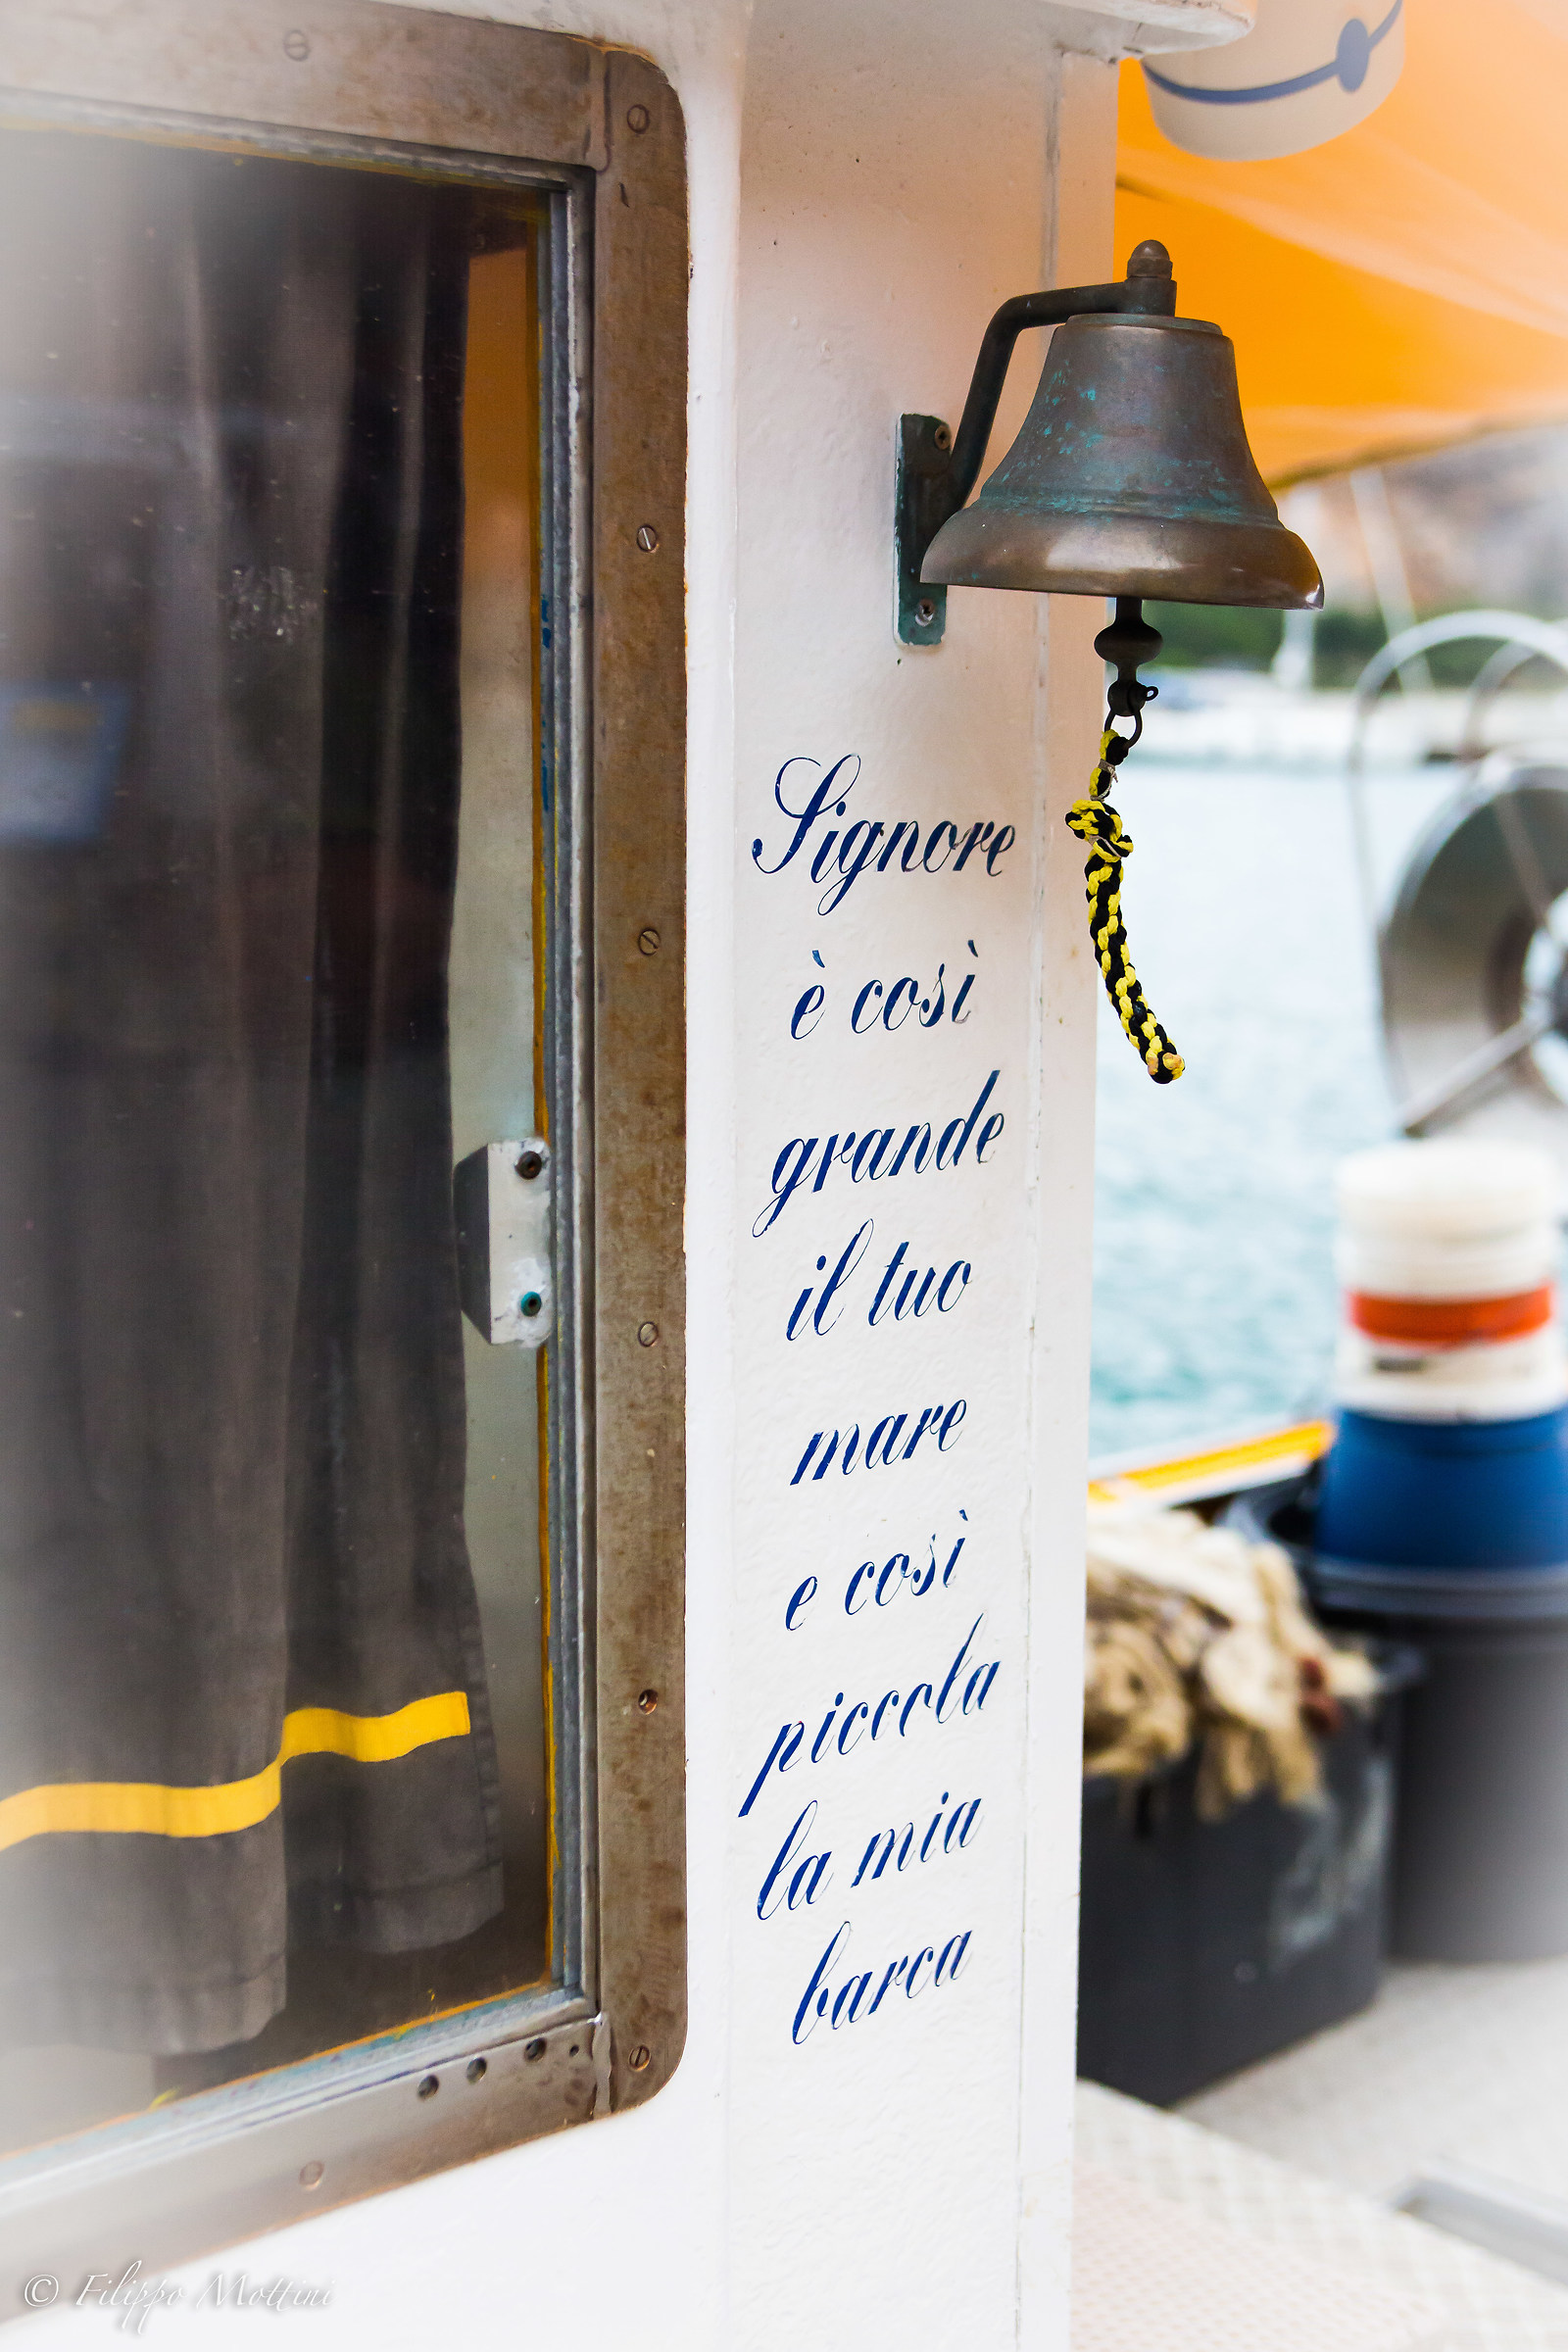 Signore
è così
grande
il tuo
mare
e così
piccola
la mia
barca
© Filippo Mottini